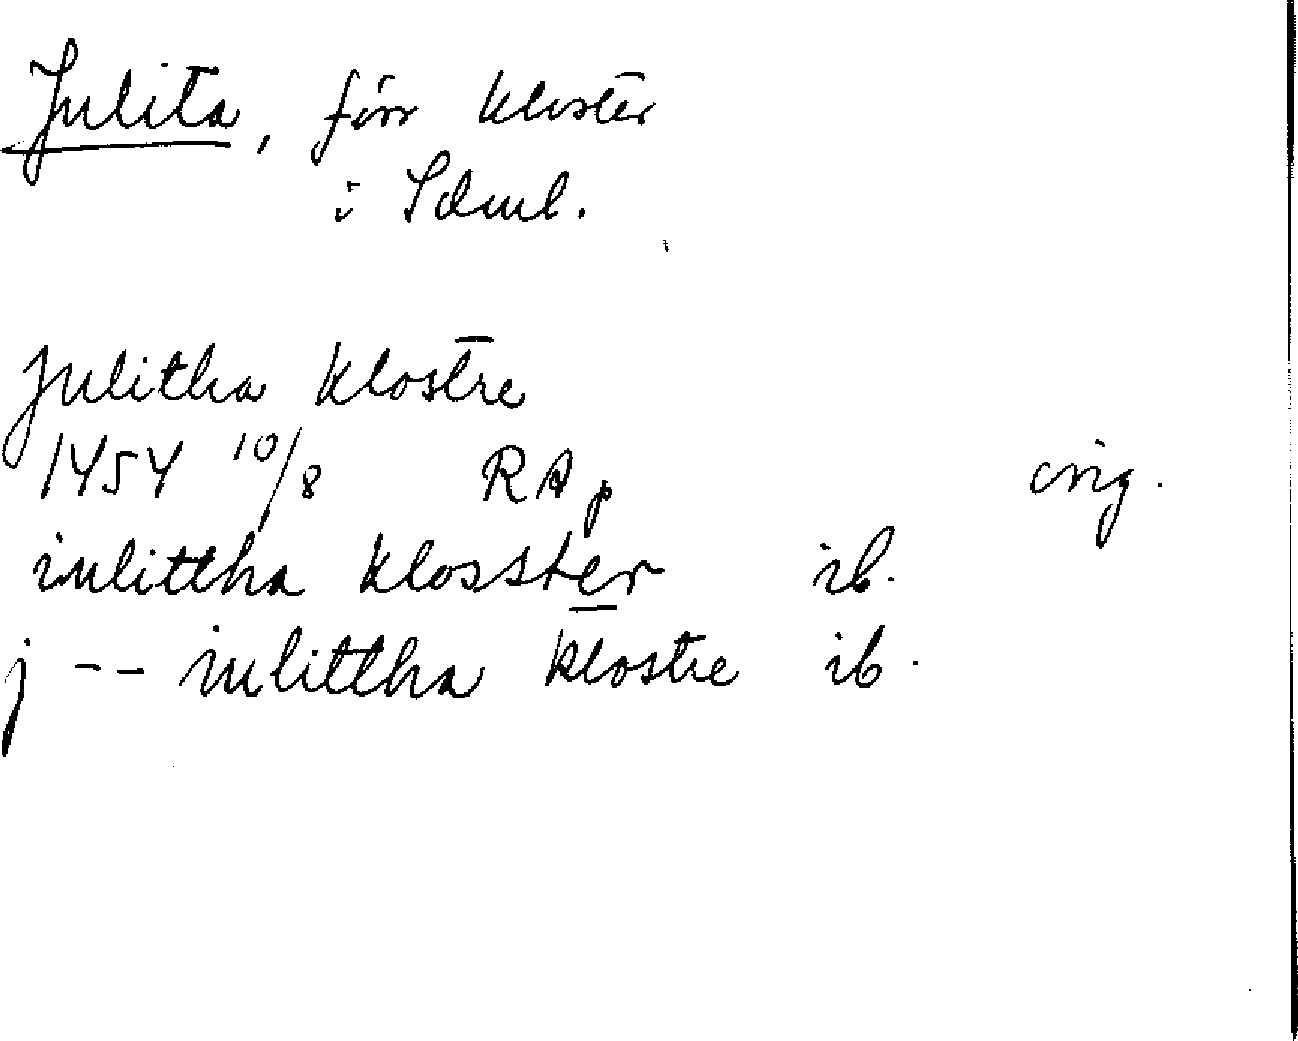 Julita, förr kloster
i Sdml.
Julitha klostre
1454 10/8 RAp orig.
iulittha klosster ib.
j -- iulittha klostre ib.